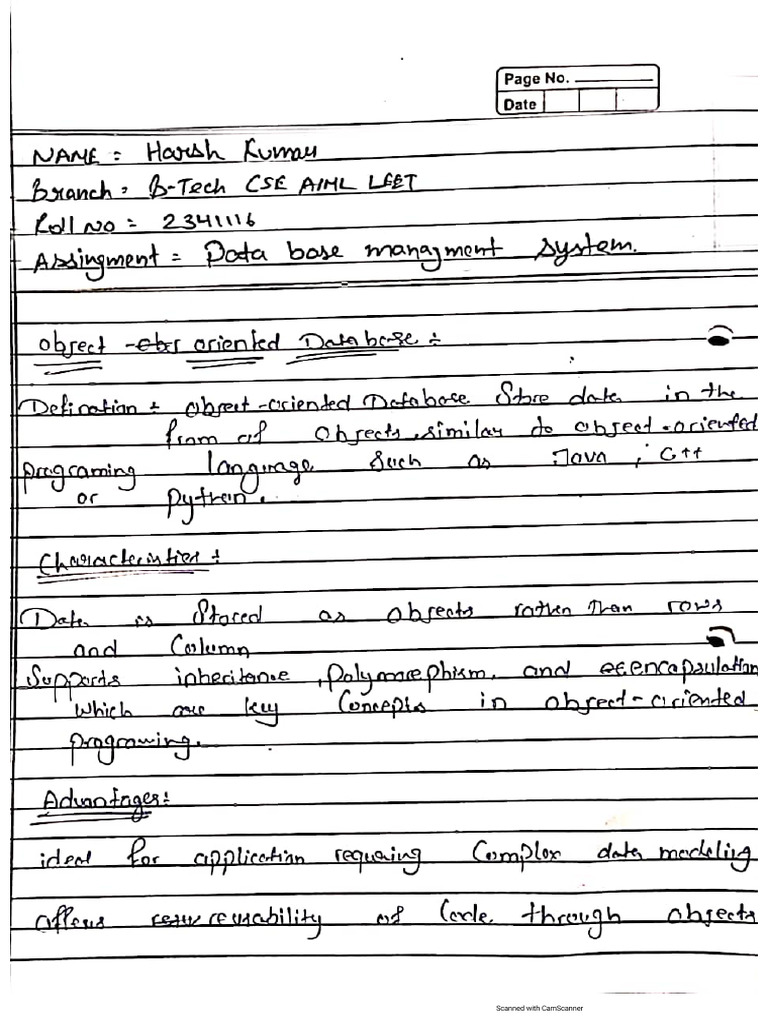 Page No.
Date
NAME = Harsh Kumar
Branch = B-Tech CSE AIML LEET
Roll No = 2341116
Assingment = Data base managment system.
object - oriented Database :-
Defination :- object-oriented Database Store data in the
from of objects, similar to object-oriented
programing language such as Java, C++
or python.
Characteristics :-
Data is Stored as objects rather than rows
and Column
Supports inheritance, polymorphism, and encapsulation
which are key Concepts in object-oriented
programing.
Advantages :-
ideal for application requring Complex data modeling
offers reusability of Code through objects
Scanned with CamScanner